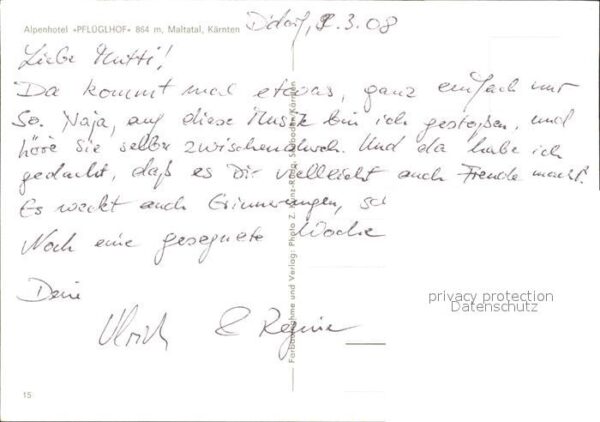 Alpenhotel »PFLÜGLHOF« 864 m, Maltatal, Kärnten
D'dorf, 2.3.08
Liebe Mutti!
Da kommt mal etwas, ganz einfach nur
so. Naja, auf diese Musik bin ich gestoßen, und
höre sie selber zwischendurch. Und da habe ich
gedacht, daß es Dir vielleicht auch Freude macht.
Es weckt auch Erinnerungen,
Noch eine gesegnete Woche
Deine
Ulrich & Regine
Farbaufnahme und Verlag: Photo Z.
privacy protection
Datenschutz
15